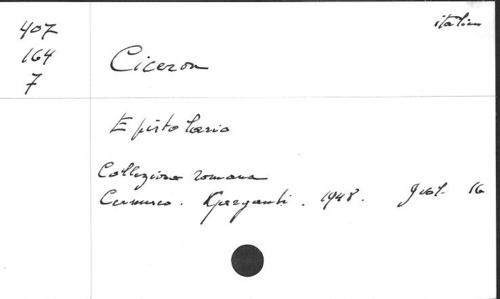 407
164
7
italien
Ciceron
Epistolario
Collezione romana
1948. 9 vol. 16